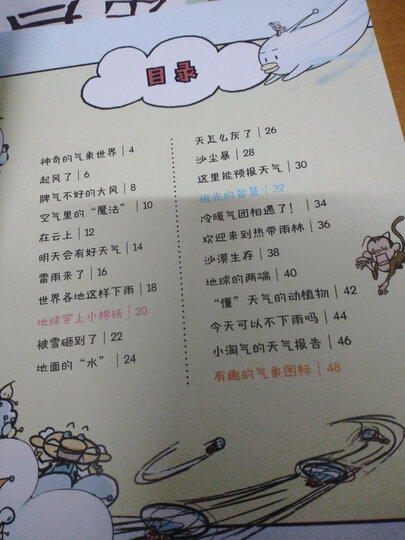 目录
神奇的气象世界 | 4
起风了 | 6
脾气不好的大风 | 8
空气里的“魔法” | 10
在云上 | 12
明天会有好天气 | 14
雷雨来了 | 16
世界各地这样下雨 | 18
地球穿上小棉袄 | 20
被雪砸到了 | 22
地面的“水” | 24
天怎么灰了 | 26
沙尘暴 | 28
这里能预报天气 | 30
祖先的智慧 | 32
冷暖气团相遇了! | 34
欢迎来到热带雨林 | 36
沙漠生存 | 38
地球的两端 | 40
“懂”天气的动植物 | 42
今天可以不下雨吗 | 44
小淘气的天气报告 | 46
有趣的气象图标 | 48